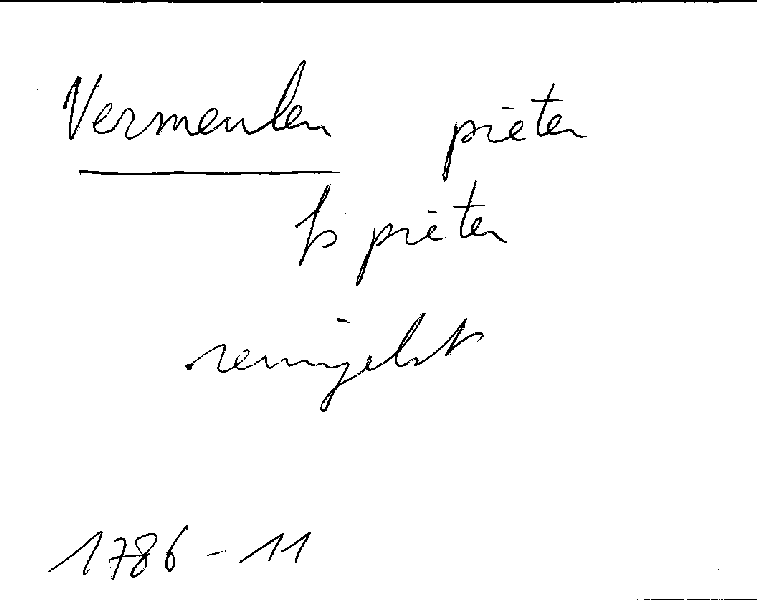 Vermeulen pieter
fs pieter
reningelst
1786-11